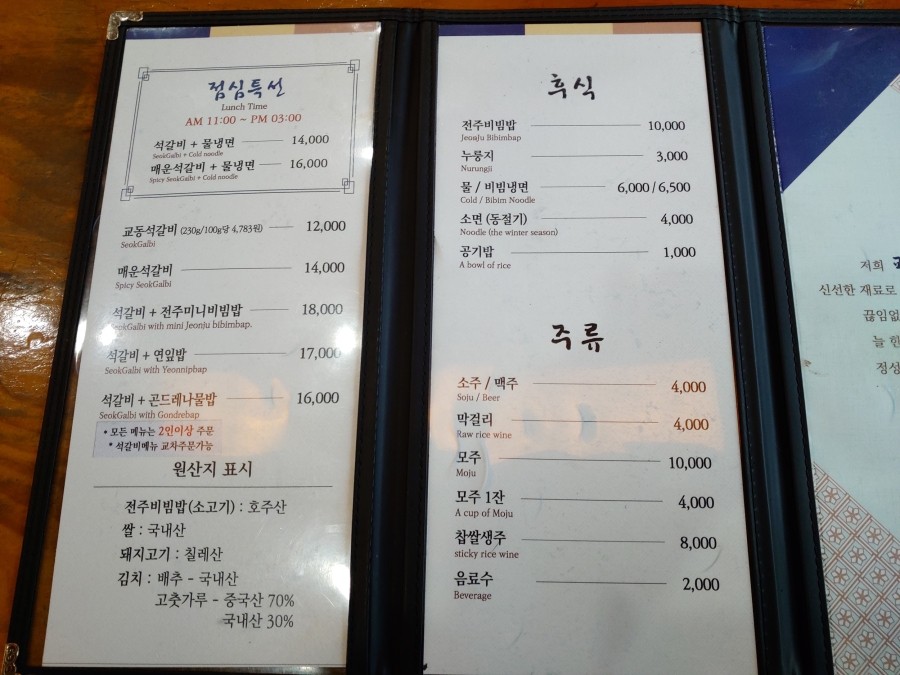 점심특선
Lunch Time
AM 11:00 ~ PM 03:00
석갈비 + 물냉면 14,000
SeokGalbi + Cold noodle
매운석갈비 + 물냉면 16,000
Spicy SeokGalbi + Cold noodle
교동석갈비 (230g/100g당 4,783원) 12,000
SeokGalbi
매운석갈비 14,000
Spicy SeokGalbi
석갈비 + 전주미니비빔밥 18,000
SeokGalbi with mini Jeonju bibimbap.
석갈비 + 연잎밥 17,000
SeokGalbi with Yeonnipbap
석갈비 + 곤드레나물밥 16,000
SeokGalbi with Gondrebap
• 모든 메뉴는 2인이상 주문
* 석갈비메뉴 교차주문가능
원산지 표시
전주비빔밥(소고기) : 호주산
쌀 : 국내산
돼지고기 : 칠레산
김치 : 배추 - 국내산
고춧가루 - 중국산 70%
국내산 30%
후식
전주비빔밥 10,000
Jeonju Bibimbap
누룽지 3,000
Nurungji
물 / 비빔냉면 6,000 / 6,500
Cold / Bibim Noodle
소면 (동절기) 4,000
Noodle (the winter season)
공기밥 1,000
A bowl of rice
주류
소주 / 맥주 4,000
Soju / Beer
막걸리 4,000
Raw rice wine
모주 10,000
Moju
모주 1잔 4,000
A cup of Moju
찹쌀생주 8,000
sticky rice wine
음료수 2,000
Beverage
저희
신선한 재료로
끊임없
늘 한
정성